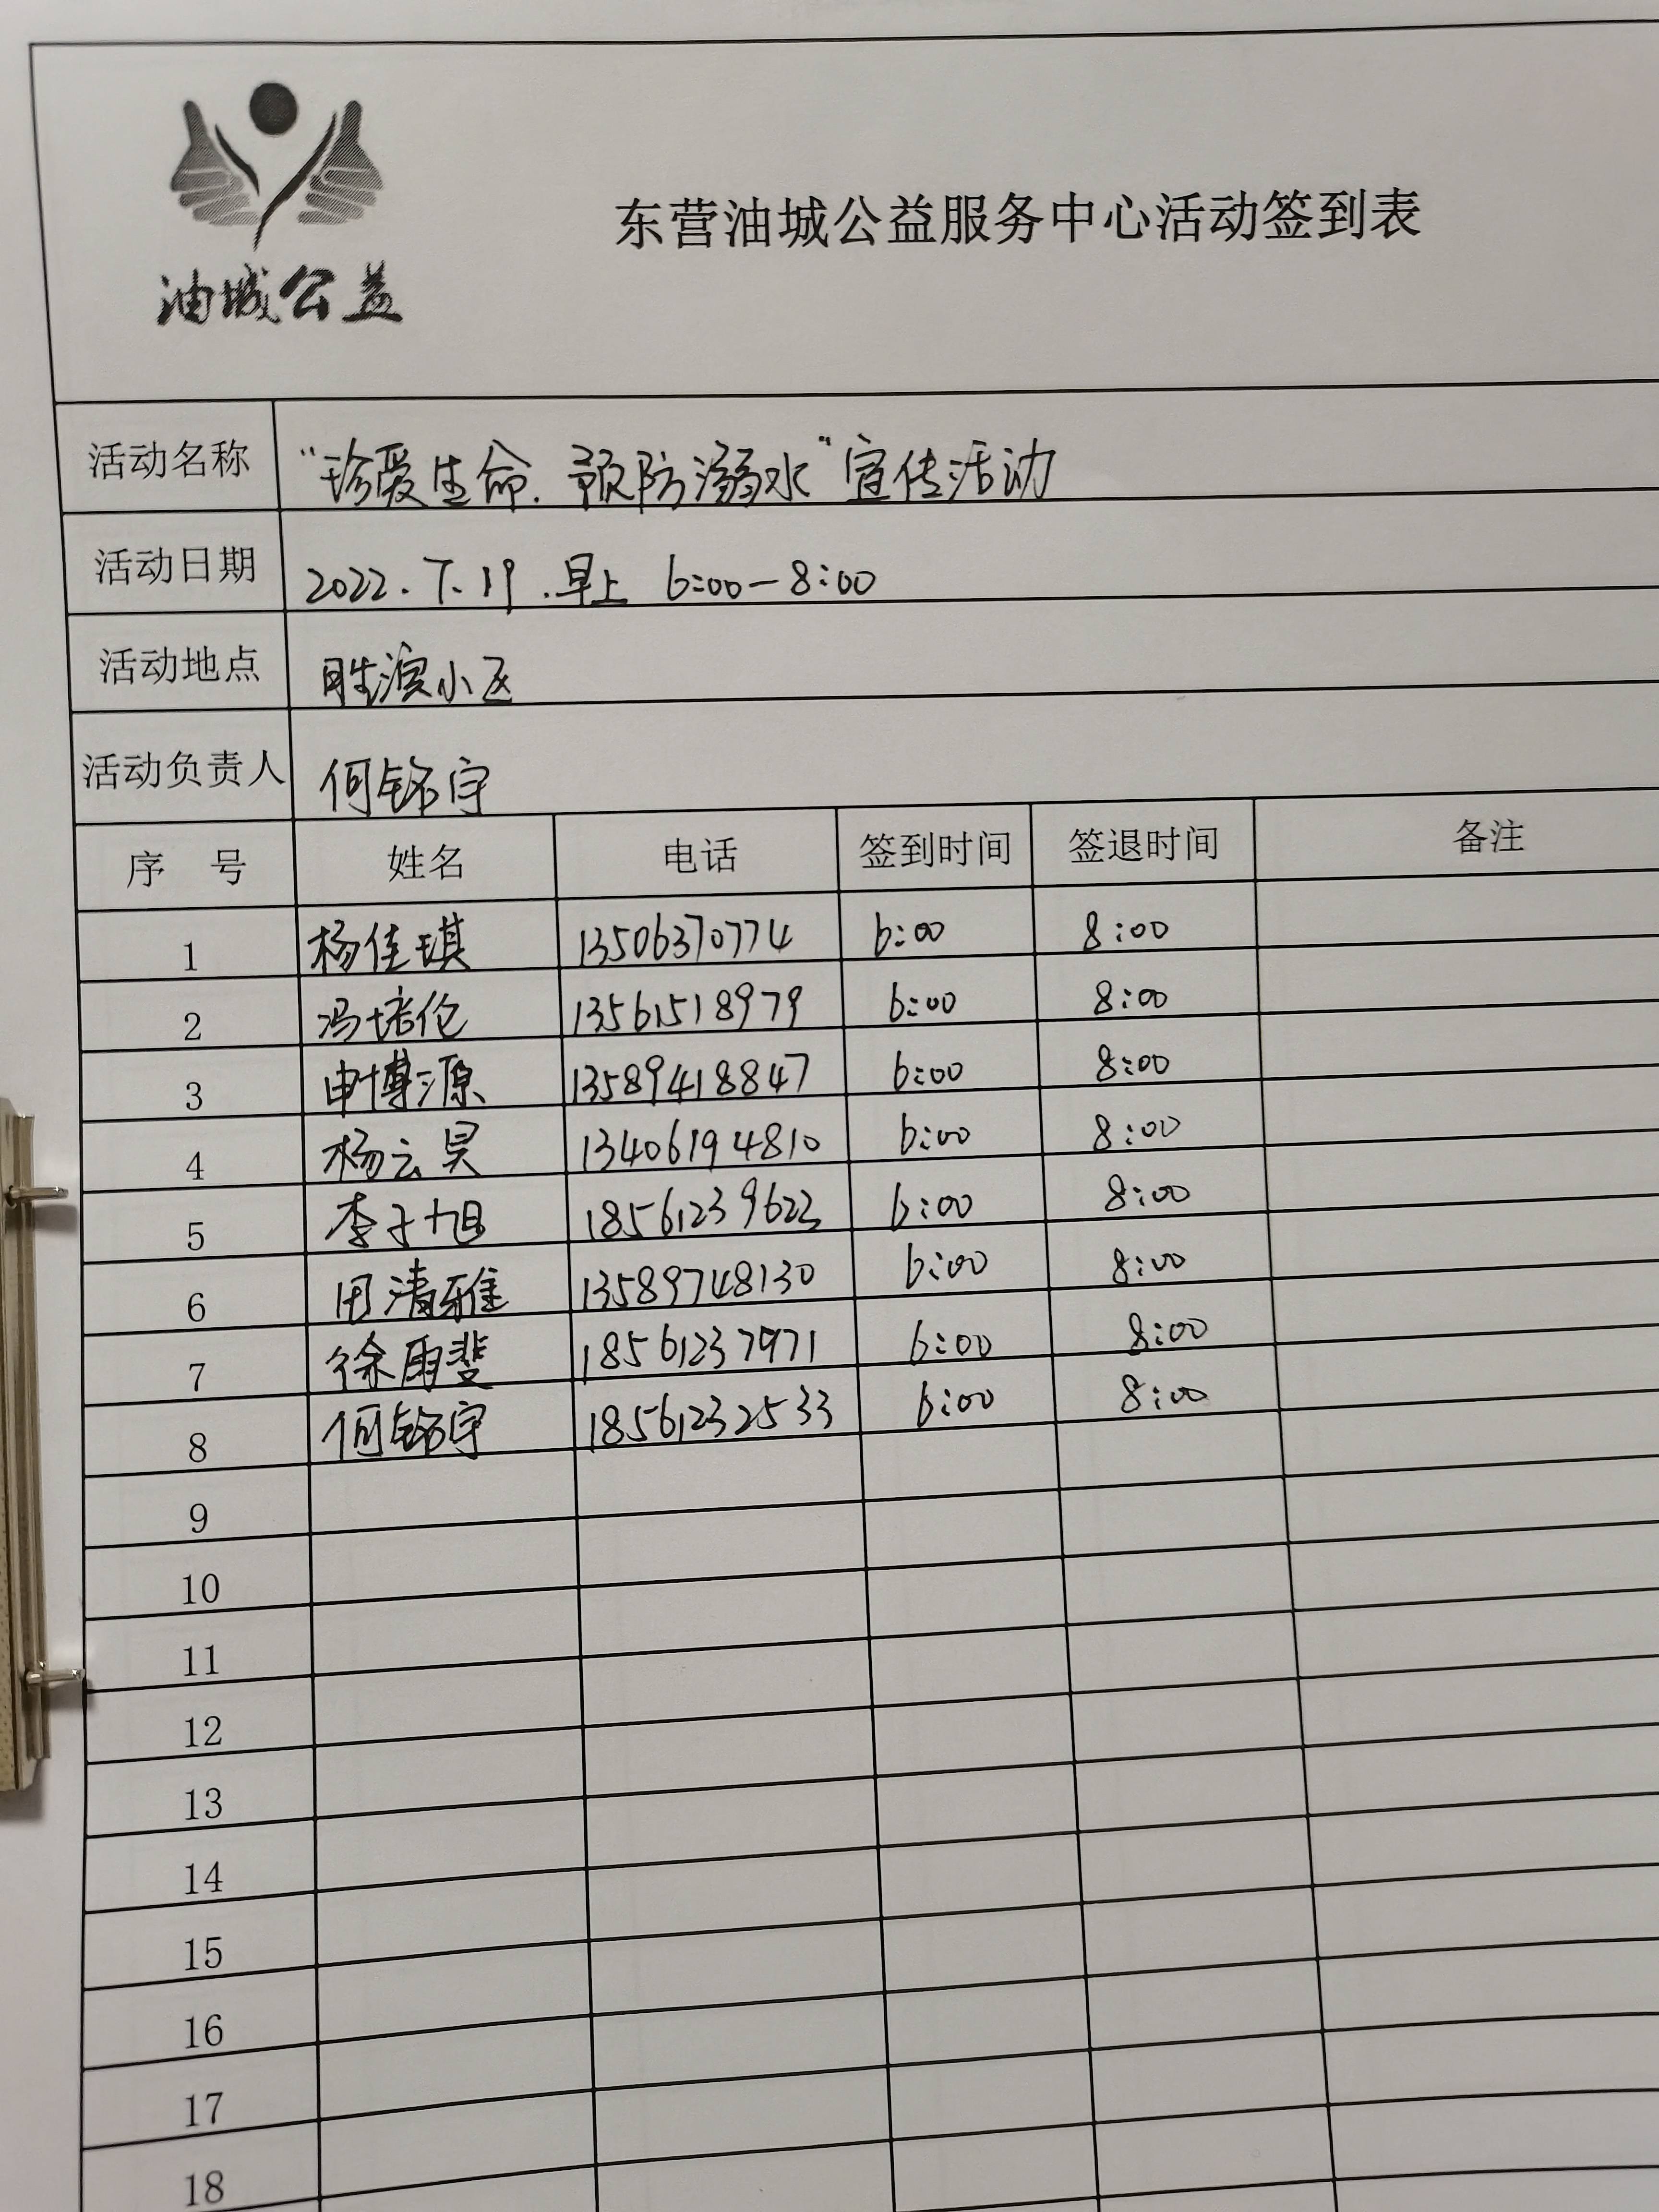 油城公益
东营油城公益服务中心活动签到表
活动名称 “珍爱生命.预防溺水”宣传活动
活动日期 2022.7.19.早上 6:00-8:00
活动地点 胜滨小区
活动负责人 何铭宇
序 号 姓名 电话 签到时间 签退时间 备注
1 杨佳琪 13506370774 6:00 8:00
2 冯培伦 13561518979 6:00 8:00
3 申博源 13589418847 6:00 8:00
4 杨云昊 13406194810 6:00 8:00
5 李子旭 18561239622 6:00 8:00
6 田清雅 13589748130 6:00 8:00
7 徐雨斐 18561237971 6:00 8:00
8 何铭宇 18561232533 6:00 8:00
9
10
11
12
13
14
15
16
17
18